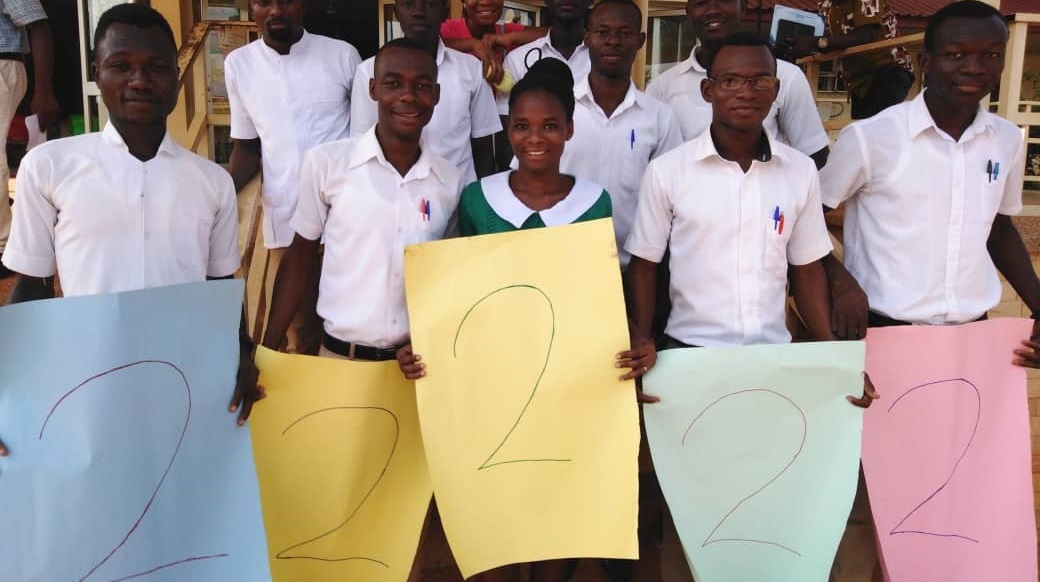 2 2 2 2 2